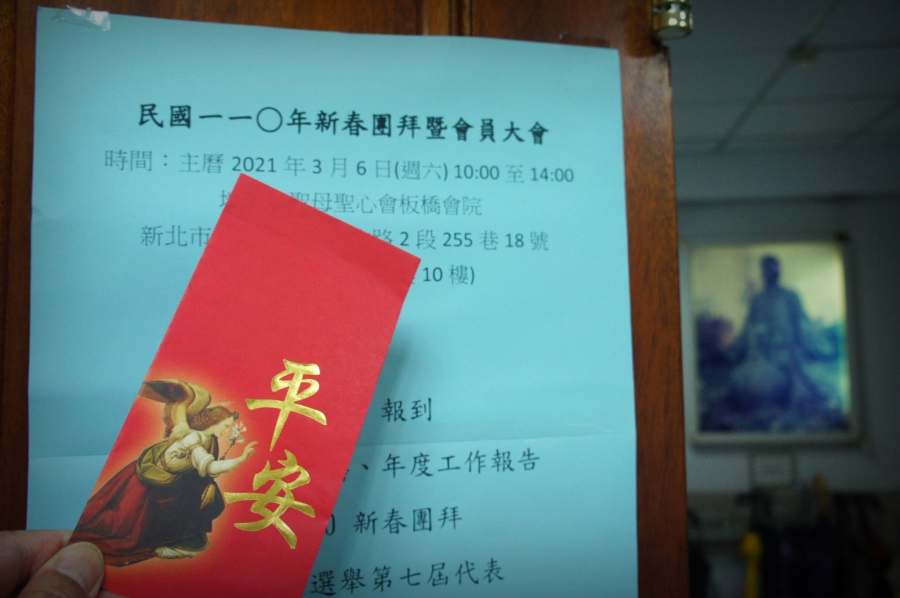 民國一一〇年新春團拜暨會員大會
時間：主曆 2021 年 3 月 6 日(週六) 10:00 至 14:00
聖母聖心會板橋會院
新北市 路 2 段 255 巷 18 號
10 樓)
報到
、年度工作報告
新春團拜
選舉第七屆代表
平安